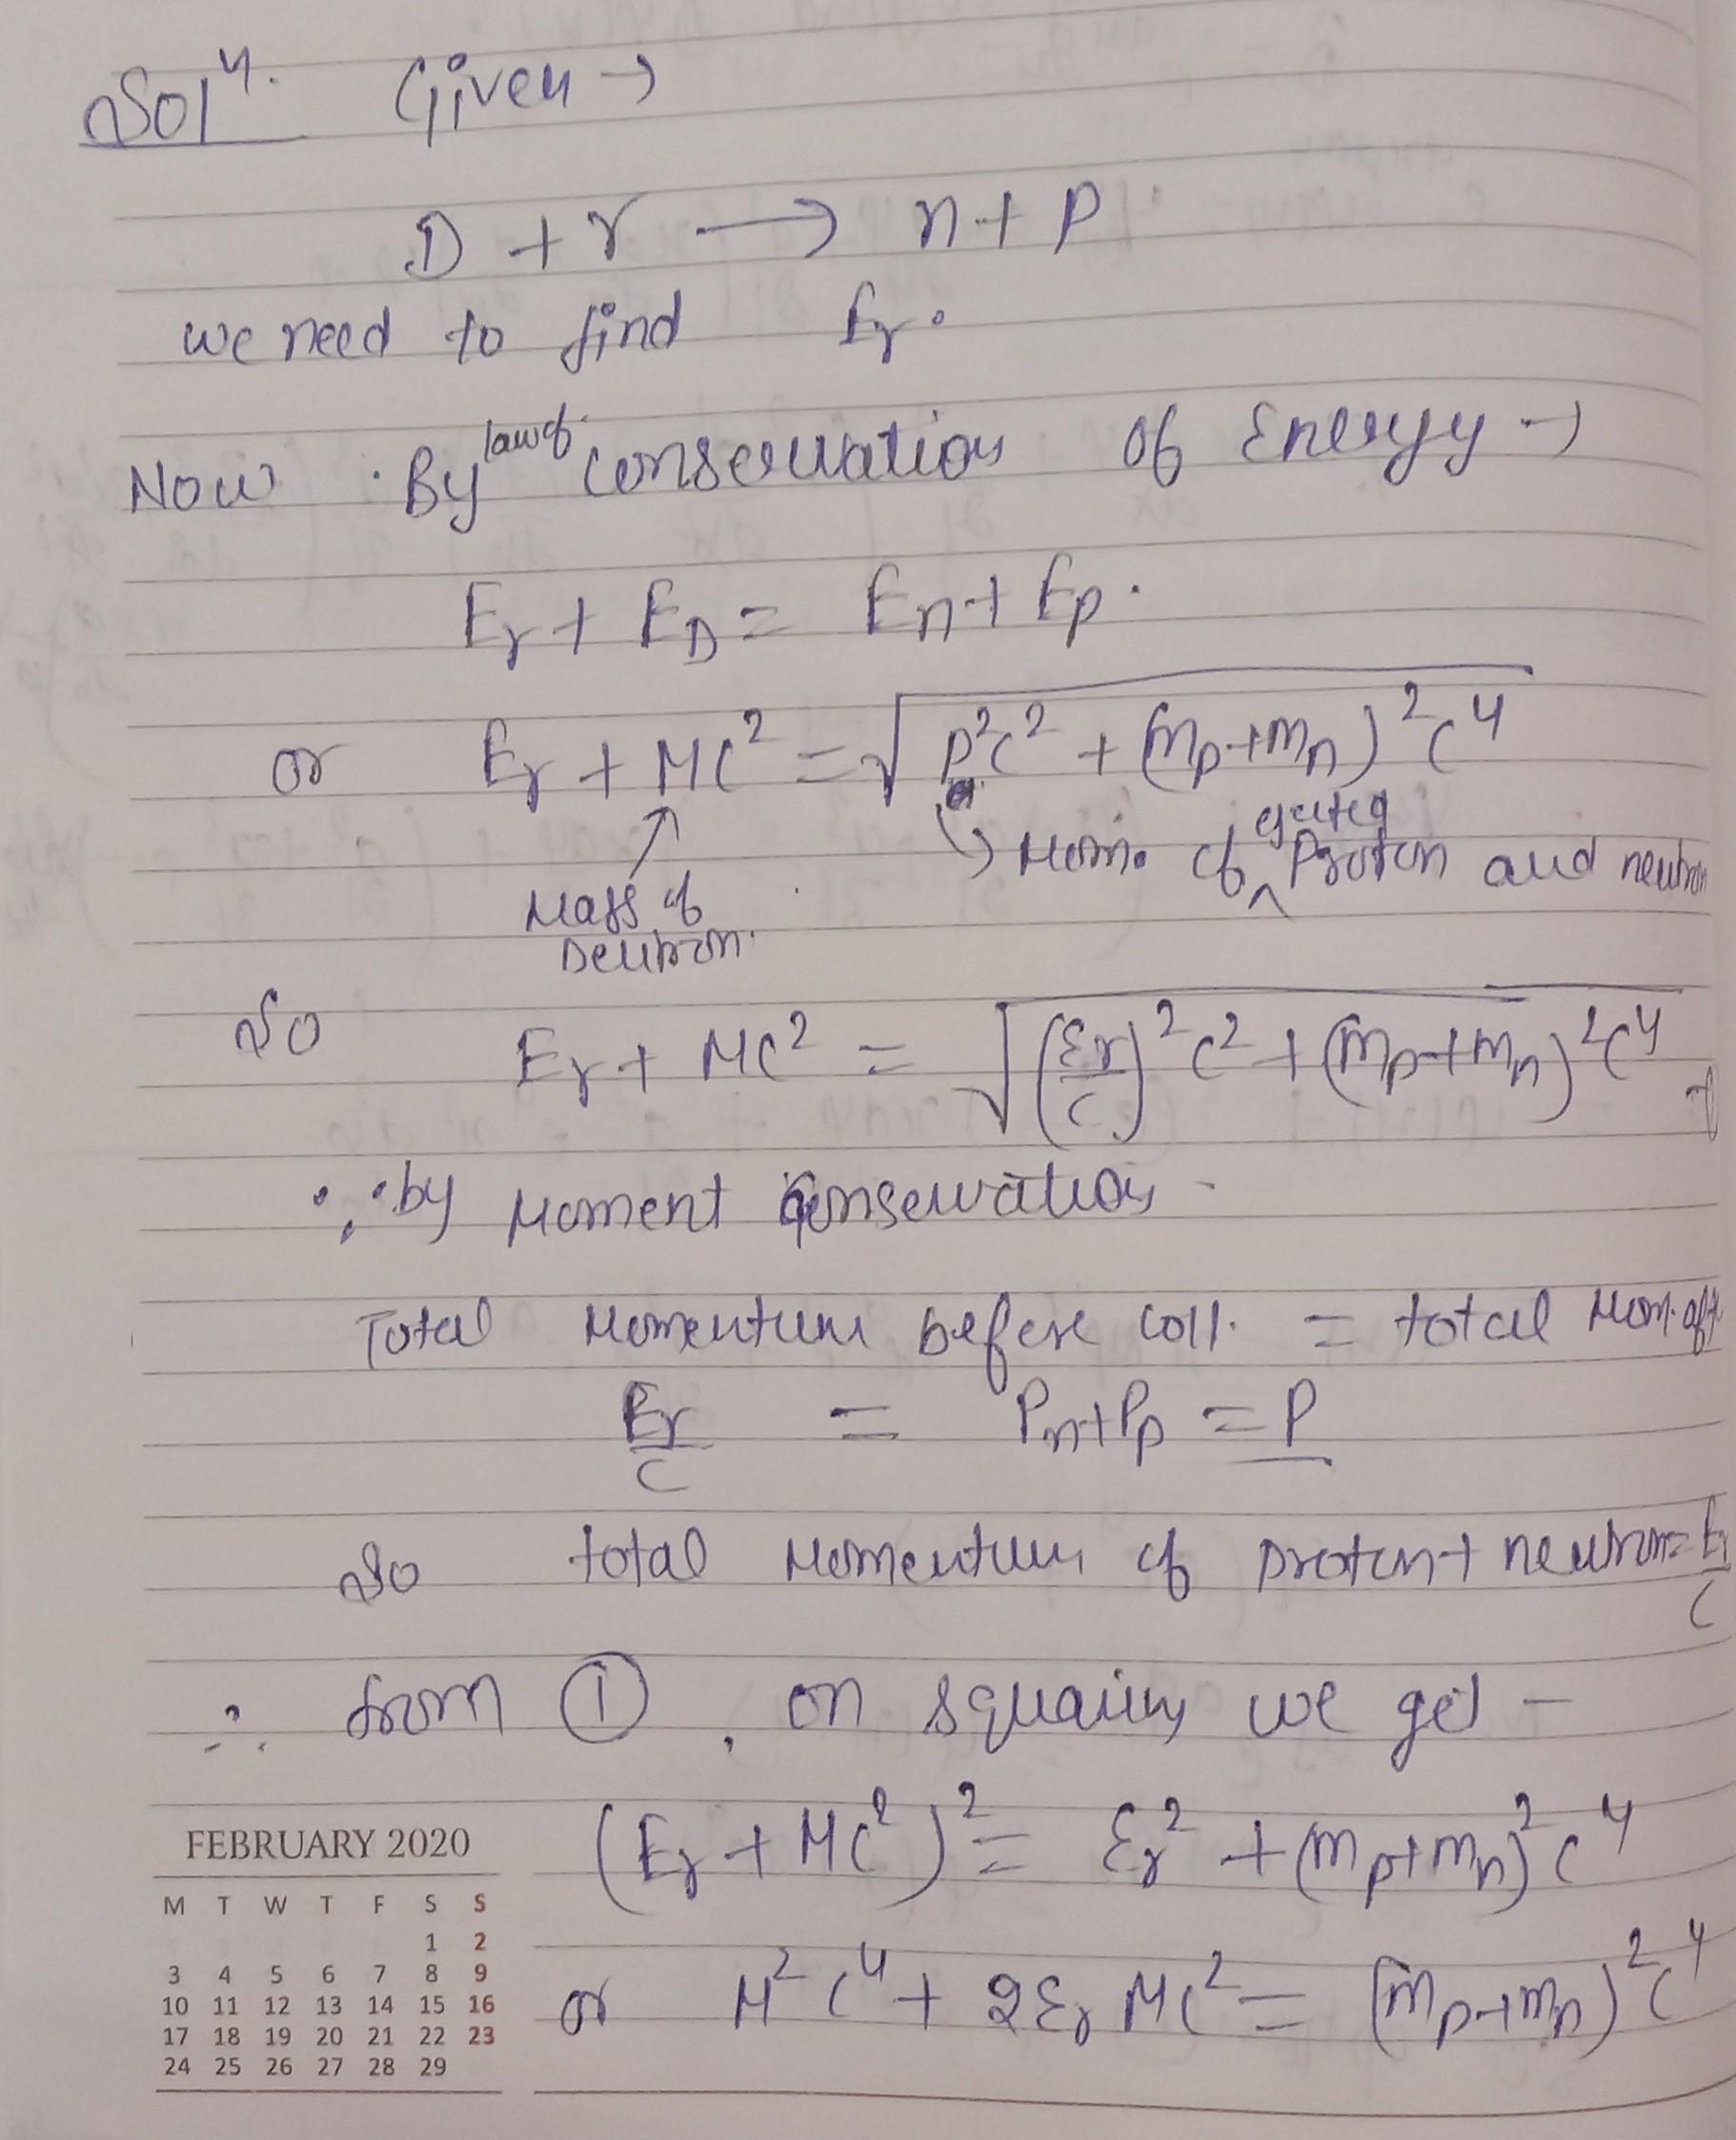 Solⁿ. Given →
D + γ → n + p.
we need to find Eγ.
Now By law of conservation of Energy →
Eγ + E_D = En + Ep.
or Eγ + MC² = √(p²c² + (mp+mn)²c⁴)
Mass of Deutron.
Mom. of ejected Proton and neutron
So Eγ + MC² = √((Eγ/c)²c² + (mp+mn)²c⁴)
∵ by Moment conservation -
Total Momentum before coll. = total Mom. aft
Eγ/c = Pn+Pp = P
So total Momentum of proton + neutron = Eγ/c
∴ from ①, on squaring we get -
(Eγ + MC²)² = Eγ² + (mp+mn)²c⁴
or M²c⁴ + 2Eγ MC² = (mp+mn)²c⁴
FEBRUARY 2020
M T W T F S S
1 2
3 4 5 6 7 8 9
10 11 12 13 14 15 16
17 18 19 20 21 22 23
24 25 26 27 28 29